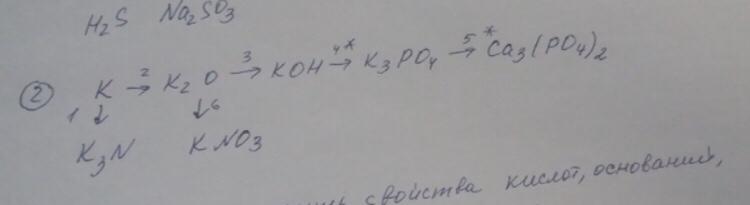 H₂S Na₂SO₃
② K →² K₂O →³ KOH →⁴* K₃PO₄ →⁵* Ca₃(PO₄)₂
1↓ ↓6
K₃N KNO₃
свойства кислот, оснований,